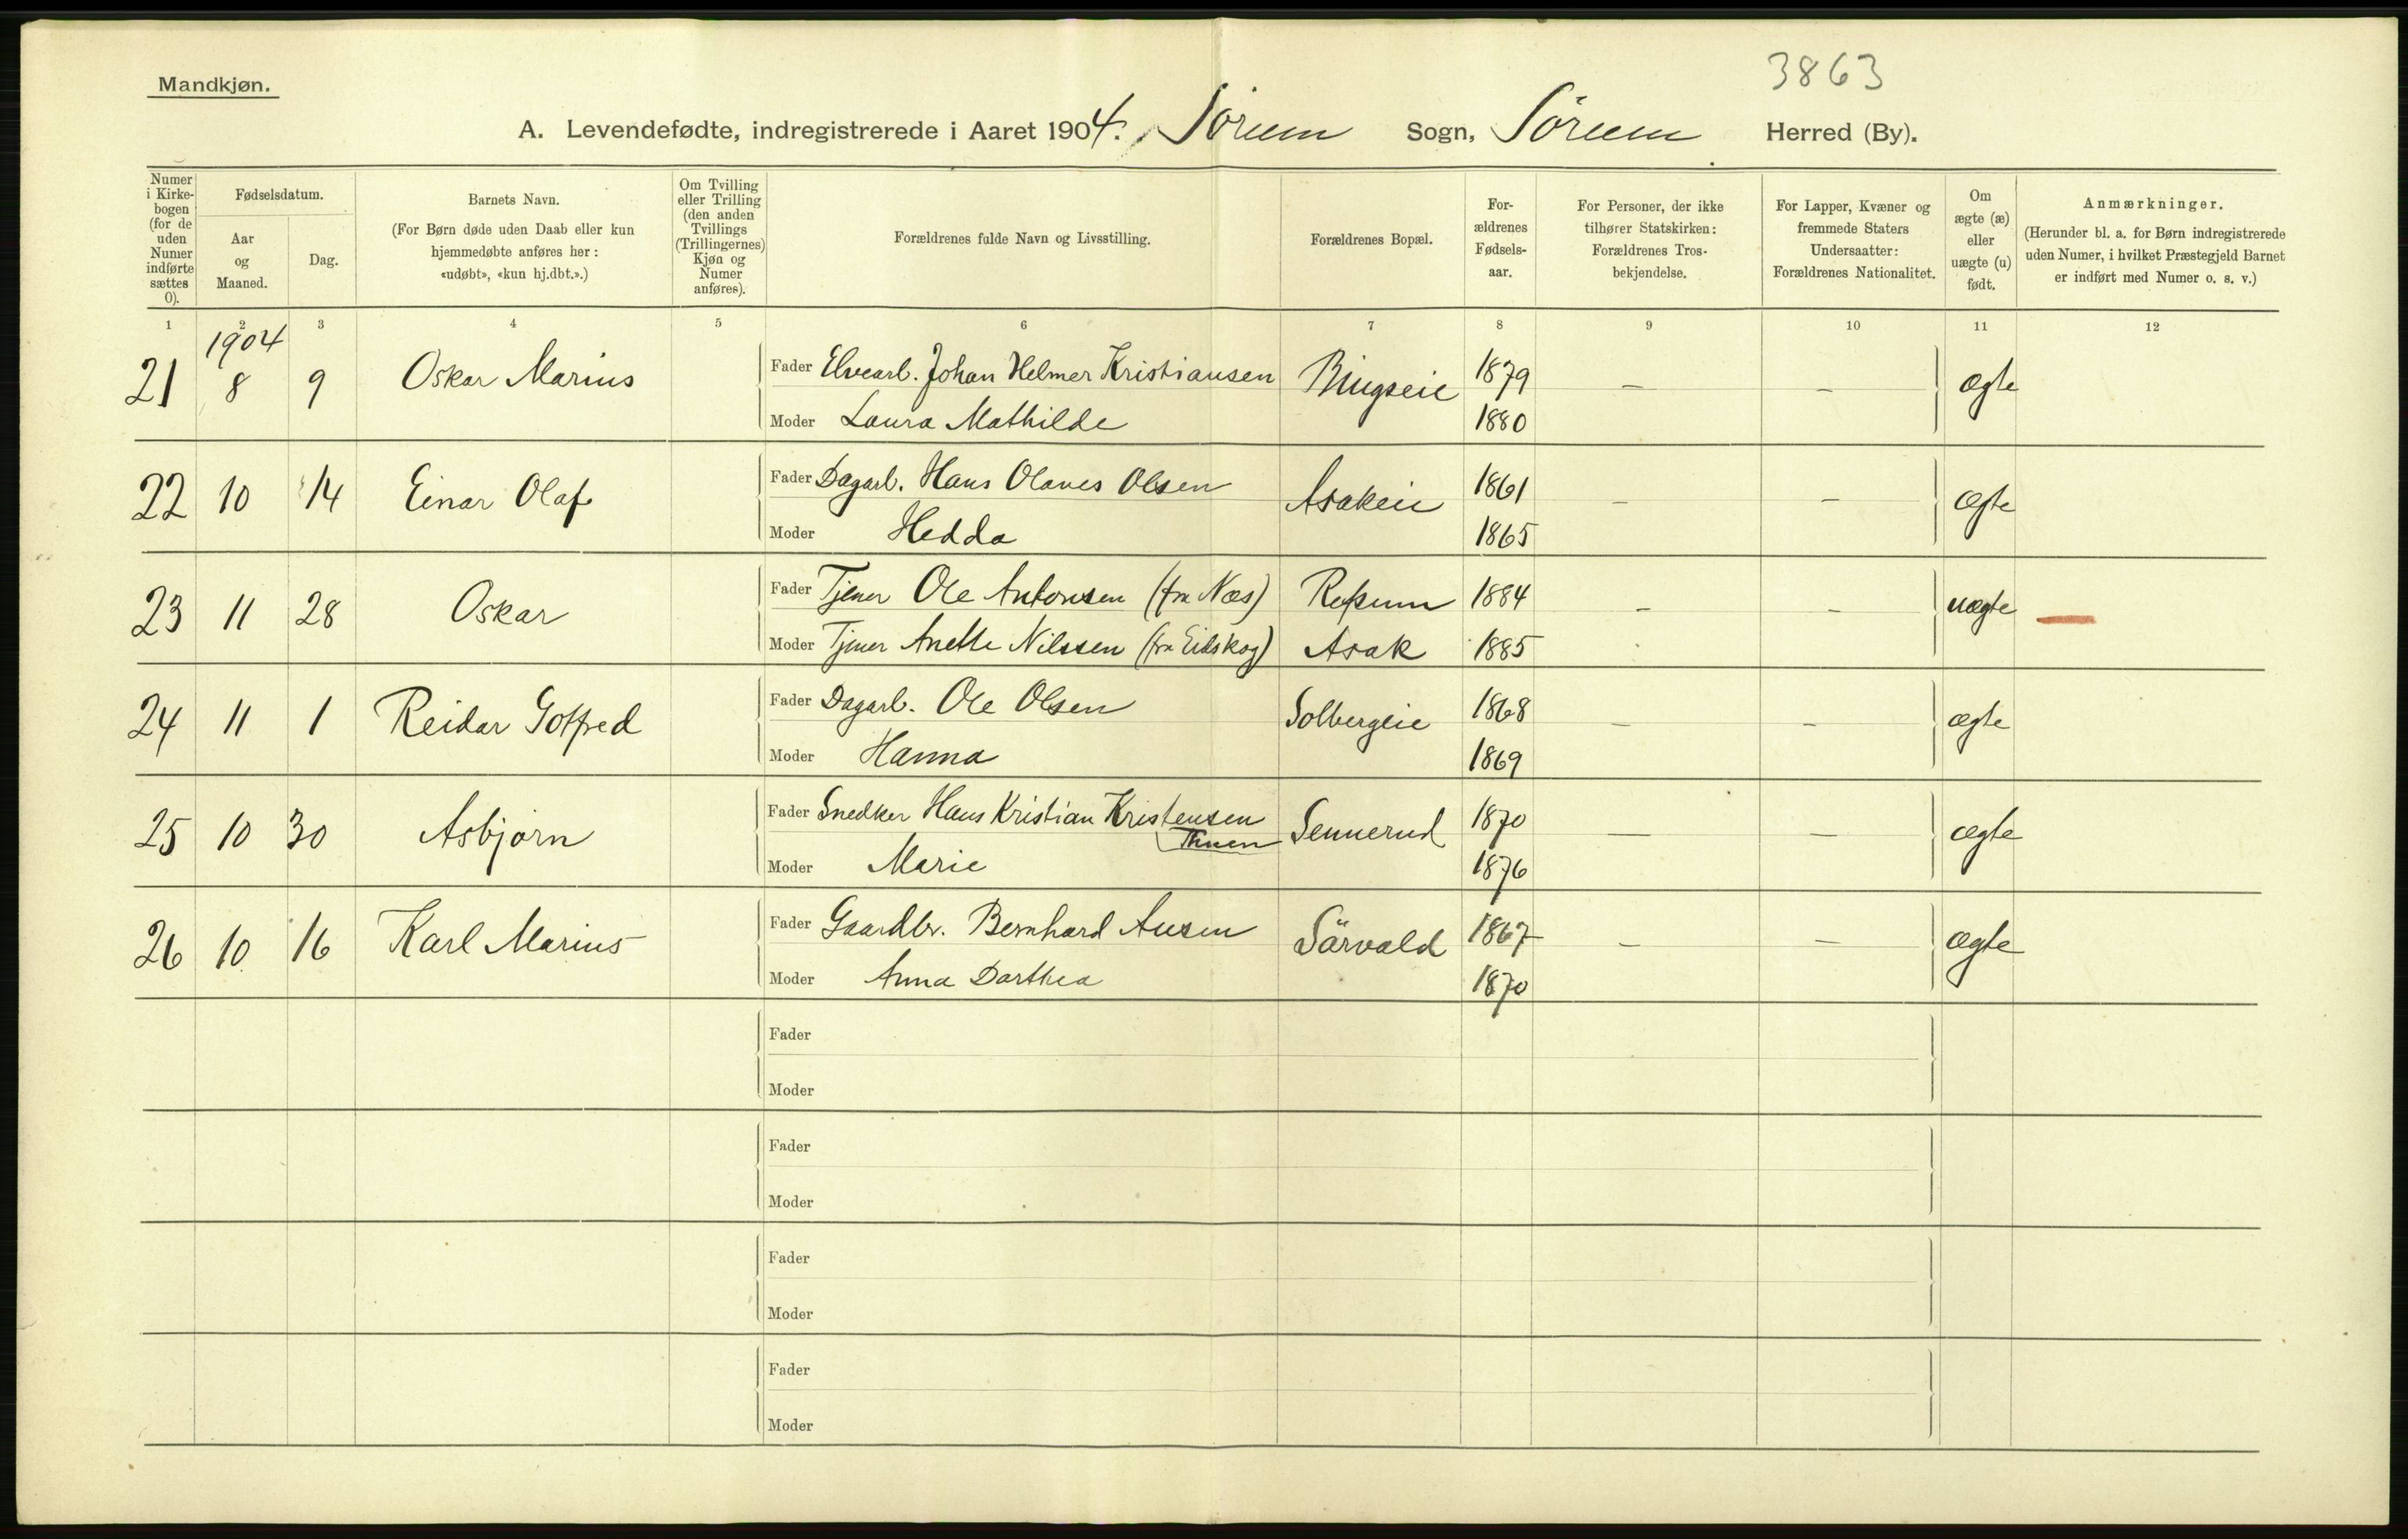 3863
Mandkjøn.
A. Levendefødte, indregistrerede i Aaret 1904. Sørum Sogn, Sørum Herred (By).
Numer i Kirke-bogen (for de uden Numer indførte sættes 0).
Fødselsdatum.
Aar og Maaned.
Dag.
Barnets Navn.
(For Børn døde uden Daab eller kun
hjemmedøbte anføres her:
«udøbt», «kun hj.dbt.».)
Om Tvilling
eller Trilling
(den anden
Tvillings
(Trillingernes)
Kjøn og
Numer
anføres).
Forældrenes fulde Navn og Livsstilling.
Forældrenes Bopæl.
For-
ældrenes
Fødsels-
aar.
For Personer, der ikke
tilhører Statskirken:
Forældrenes Tros-
bekjendelse.
For Lapper, Kvæner og
fremmede Staters
Undersaatter:
Forældrenes Nationalitet.
Om
ægte (æ)
eller
uægte (u)
født.
Anmærkninger.
(Herunder bl. a. for Børn indregistrerede
uden Numer, i hvilket Præstegjeld Barnet
er indført med Numer o. s. v.)
1 2 3 4 5 6 7 8 9 10 11 12
1904
21 8 9 Oskar Marius Fader Elvearb. Johan Helmer Kristiansen Bingseie 1879 — — ægte
Moder Laura Mathilde 1880
22 10 14 Einar Olaf Fader Dagarb. Hans Olaves Olsen Asakeie 1861 — — ægte
Moder Hedda 1865
23 11 28 Oskar Fader Tjener Ole Antonsen (fra Næs) Refsum 1884 — — uægte
Moder Tjener Anette Nilssen (fra Eidskog) Asak 1885
24 11 1 Reidar Gotfred Fader Dagarb. Ole Olsen Solbergeie 1868 — — ægte
Moder Hanna 1869
25 10 30 Asbjørn Fader Snedker Hans Kristian Kristensen Sennerud 1870 — — ægte
Thuen
Moder Marie 1876
26 10 16 Karl Marius Fader Gaardbr. Bernhard Ausen Särvald 1867 — — ægte
Moder Anna Dorthea 1870
Fader
Moder
Fader
Moder
Fader
Moder
Fader
Moder